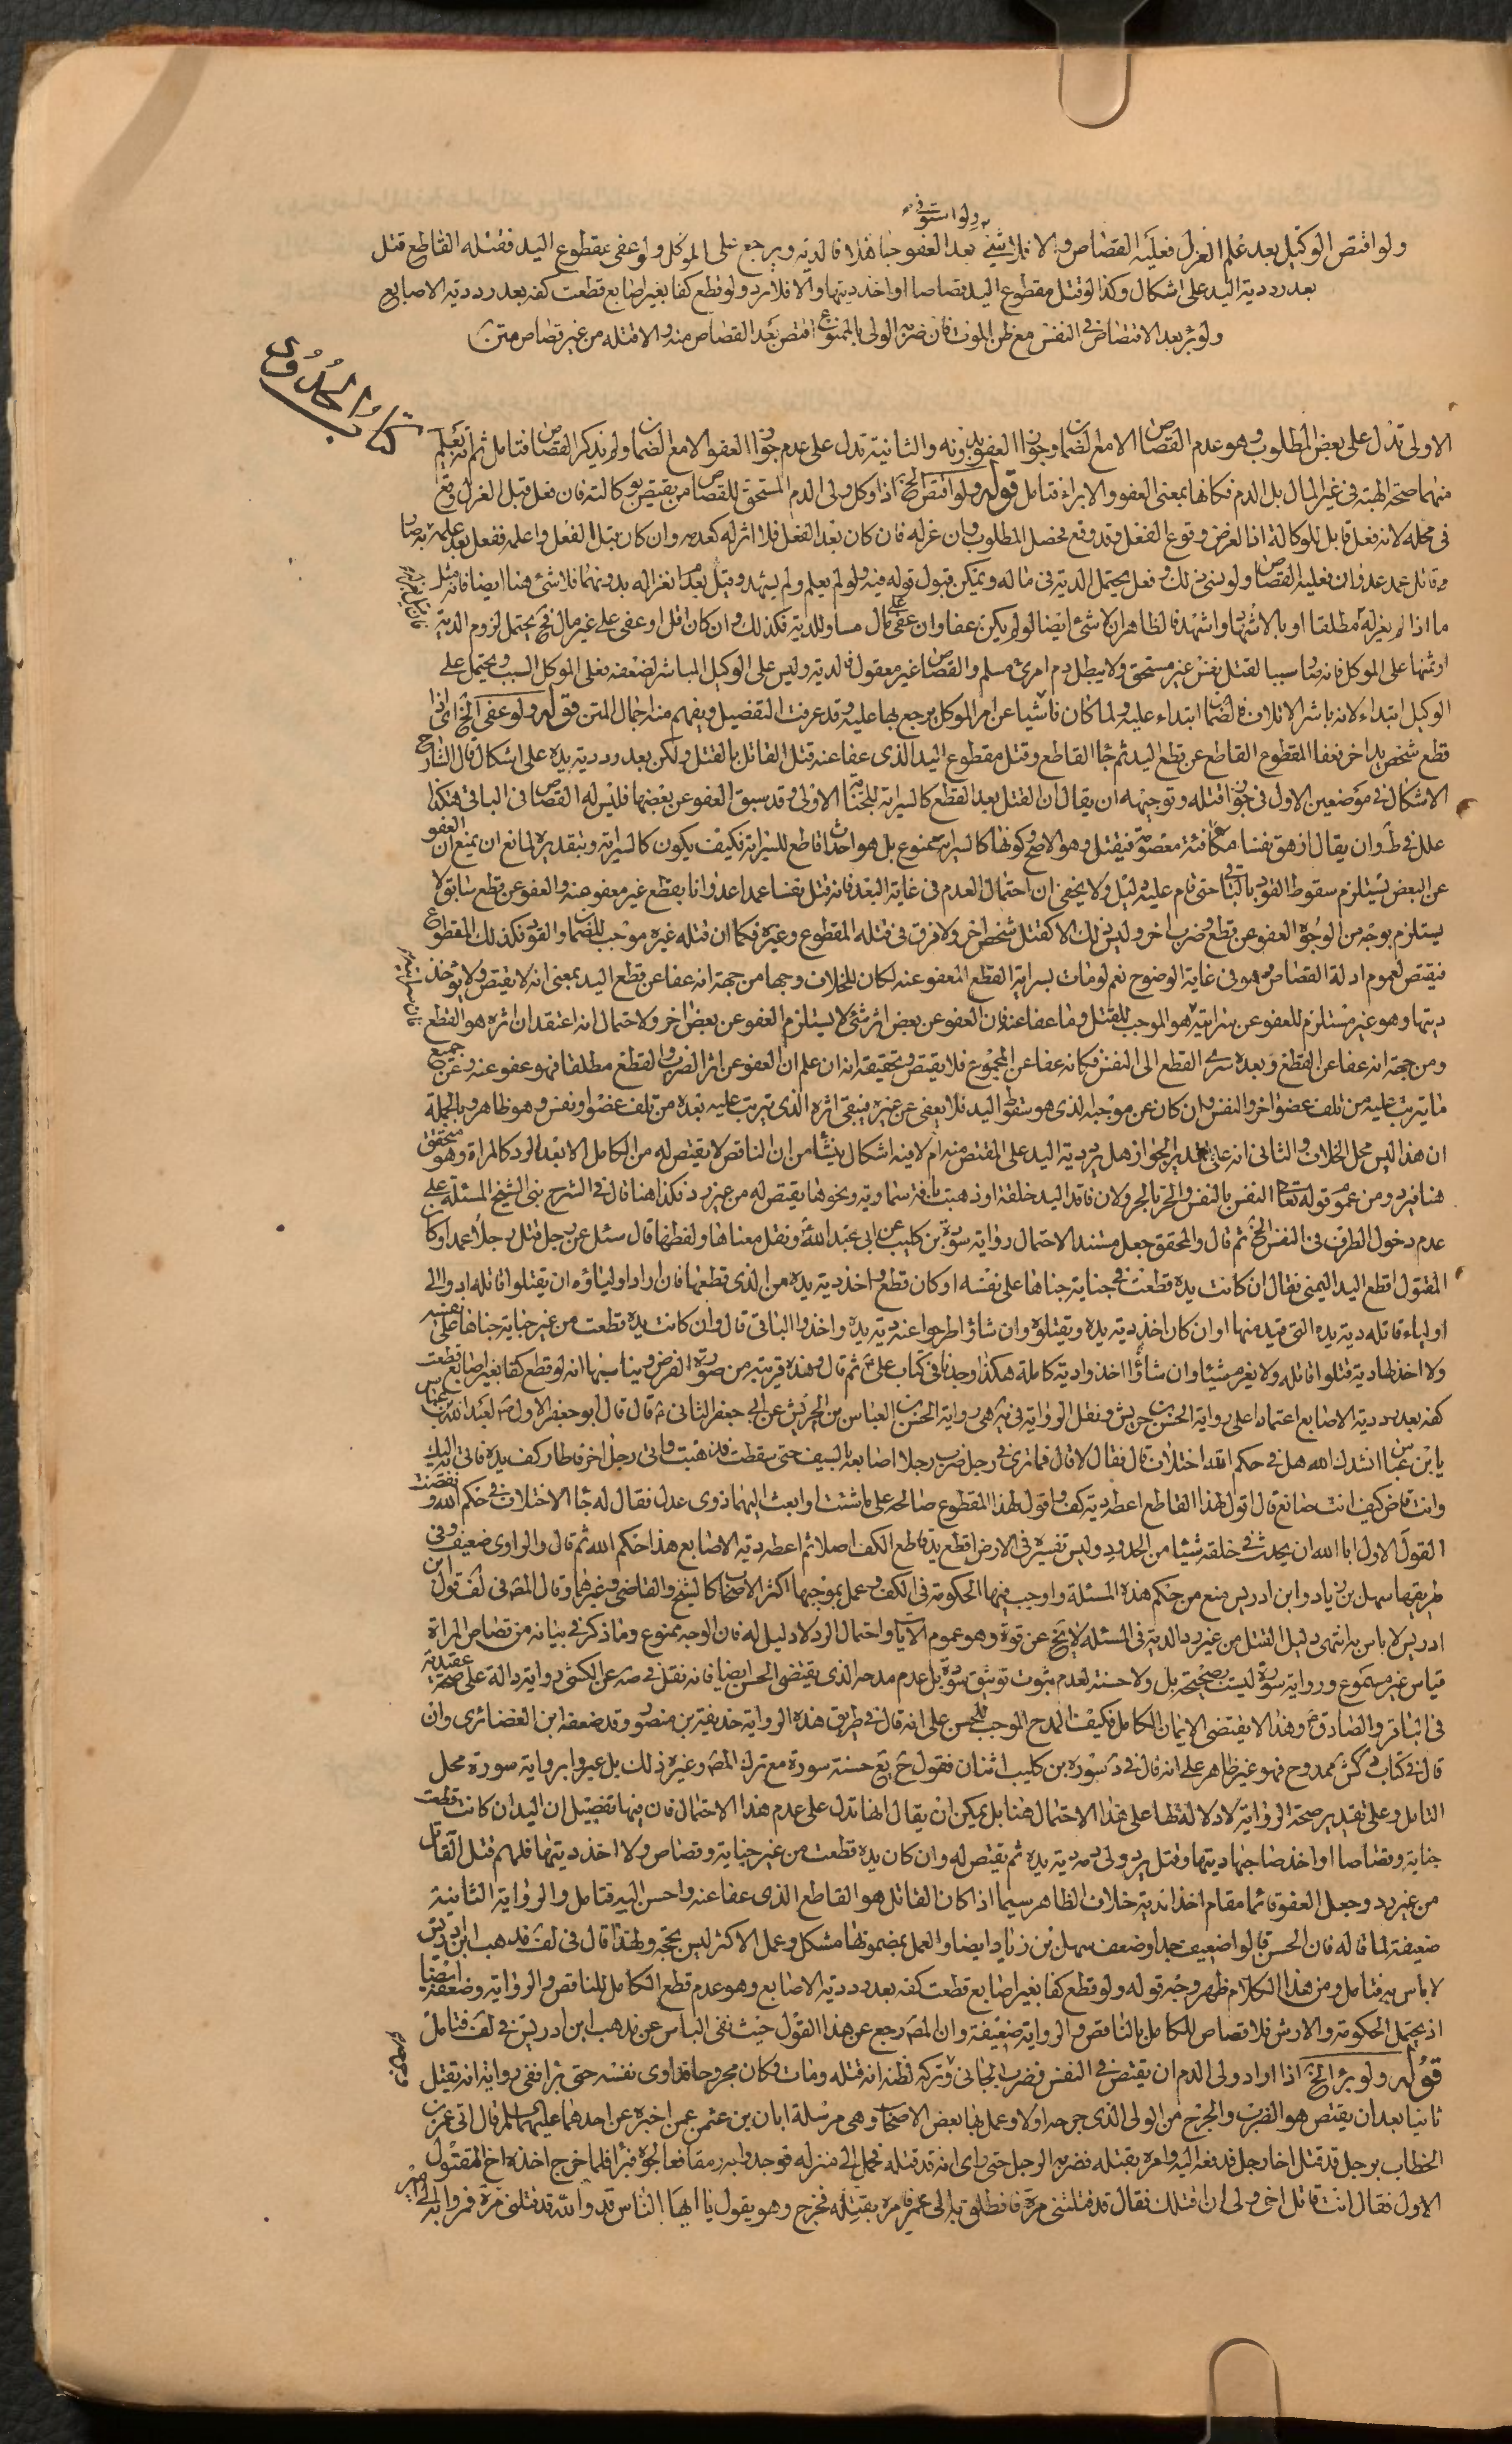 ولو استوفى
ولو اقتص الوكيل بعد علم العزل فعليه القصاص والا فلا شئ بعد العفو جاهلا فالدية ويرجع على الموكل ولو عفى مقطوع اليد فقتله القاطع قتل
بعد رد دية اليد على اشكال وكذا لو قتل مقطوع اليد قصاصا او اخذ ديتها والا فلا رد ولو قطع كفا بغير اصابع قطعت كفه بعد رد دية الاصابع
ولو برئ بعد الاقتصاص في النفس مع ظن الموت فان ضربه الولى بالممنوع اقتص بعد القصاص منه والا قتله من غير قصاص متن
كتاب الحدود
الاولى تدل على بعض المطلوب وهو عدم القصاص الا مع الضمان وجواز العفو بدونه والثانية تدل على عدم جواز العفو الا مع الضمان ولم يذكر القصاص فتامل ثم انه يعلم
منهما صحة الهبة في غير المال بل الدم فكانها بمعنى العفو والابراء فتامل قوله ولو اقتص الخ اذا وكل ولى الدم المستحق للقصاص من يقتص بوكالته فان فعل قبل العزل وقع
في محله لانه فعل قابل للوكالة اذ الغرض وقوع الفعل وقد وقع فحصل المطلوب وان عزله فان كان بعد الفعل فلا اثر له كعدمه وان كان قبل الفعل واعلمه ففعل بعد علمه به صار
قاتل عمد عدوان فعليه القصاص ولو نسى ذلك وفعل يحتمل الدية في ماله ويمكن قبول قوله فيه ولو لم يعلم ولم يشهد وقيل بعدم انعزاله بدونهما فلا شئ هنا ايضا فانه مثل
ما اذا لم يعزله مطلقا او بالاشهاد واشهد فالظاهر ان لا شئ ايضا لو لم يكن عفا وان عفى على مال مساو للدية فكذلك وان كان اقل او عفى على غير مال فح يحتمل لزوم الدية
او ثمنها على الموكل فانه صار سببا لقتل نفس غير مستحق ولا يبطل دم امرئ مسلم والقصاص غير معقول فالدية وليس على الوكيل المباشر لضعفه فعلى الموكل السبب ويحتمل على
الوكيل ابتداء لانه باشر الاتلاف فالضمان ابتداء عليه ولما كان ناشيا عن امر الموكل يرجع بها عليه وقد عرفت التفصيل ويفهم منه اجمال المتن قوله ولو عفى الخ اى اذا
قطع شخص يد اخر فعفا المقطوع القاطع عن قطع اليد ثم جاء القاطع وقتل مقطوع اليد الذى عفا عنه قتل القاتل بالقتل ولكن بعد رد دية يده على اشكال قال الشارح
الاشكال في موضعين الاول في جواز قتله وتوجيهه ان يقال ان القتل بعد القطع كالسراية للجناية الاولى وقد سبق العفو عن بعضها فليس له القصاص في الباقى هكذا
علل في ط وان يقال ازهق نفسا مكافئة معصومة فيقتل وهو الاصح وكونها كالسراية ممنوع بل هو احداث قاطع للسراية فكيف يكون كالسراية وبتقديره لمانع ان يمنع ان العفو
عن البعض يستلزم سقوط القود بالباقى حتى قام عليه دليل ولا يخفى ان احتمال العدم في غاية البعد فانه قتل نفسا عمدا عدوانا بقطع غير معفو عنه والعفو عن قطع سابق لا
يستلزم بوجه من الوجوه العفو عن قطع وضرب اخر وليس ذلك الا كقتل شخص اخر ولا فرق في قتله المقطوع وغيره فكما ان قتله غيره موجب للضمان والقود فكذلك المقطوع
فيقتص لعموم ادلة القصاص وهو في غاية الوضوح نعم لو مات بسراية القطع المعفو عنه لكان للخلاف وجها من جهة انه عفا عن قطع اليد بمعنى انه لا يقتص ولا يؤخذ
ديتها وهو غير مستلزم للعفو عن سرايته هو الموجب للقتل وما عفا عنه فان العفو عن بعض اثر شئ لا يستلزم العفو عن بعض اخر ولاحتمال انه اعتقد ان اثره هو القطع
ومن جهة انه عفا عن القطع وبعده سرى القطع الى النفس فكانه عفا عن المجموع فلا يقتص وتحقيقه انه ان علم ان العفو عن اثر الضرب والقطع مطلقا فهو عفو عنه وعن جميع
ما يترتب عليه من تلف عضو اخر والنفس وان كان عن موجبه الذى هو سقوط اليد فلا يعفى عن غيره فيبقى اثره الذى يترتب عليه بعده من تلف عضو او نفس وهو ظاهر وبالجملة
ان هذا ليس محل الخلاف والثانى انه على تقدير الجواز هل يرد دية اليد على المقتص منه ام لا فيه اشكال ينشأ من ان الناقص لا يقتص له من الكامل الا بعد الرد كالمراة وهو متحقق
هنا فيرد ومن عموم قوله تعالى النفس بالنفس والحر بالحر ولان فاقد اليد خلقة او ذهبت بافة سماوية ونحوها يقتص له من غير رد فكذا هنا قال في الشرح بنى الشيخ المسئلة على
عدم دخول الطرف في النفس الخ ثم قال والمحقق جعل مستند الاحتمال رواية سورة بن كليب عن ابى عبد الله ونقل معناها ولفظها قال سئل عن رجل قتل رجلا عمدا وكان
المقتول اقطع اليد اليمنى فقال ان كانت يده قطعت في جناية جناها على نفسه او كان قطع واخذ دية يده من الذى قطعها فان اراد اولياؤه ان يقتلوا قاتله ادوا الى
اولياء قاتله دية يده التى قيد منها او ان كان اخذ دية يده ويقتلوه وان شاؤا طرحوا عنه دية يده واخذوا الباقى قال وان كانت يده قطعت من غير جناية جناها على نفسه
ولا اخذ لها دية قتلوا قاتله ولا يغرم شيئا وان شاؤا اخذوا دية كاملة هكذا وجدنا في كتاب على ثم قال وهذه قريبة من صورة الفرض ويناسبها انه لو قطع كفا بغير اصابع قطعت
كفه بعد رد دية الاصابع اعتمادا على رواية الحسن بن حريش ونقل الرواية في هى رواية الحسن بن العباس بن الحريش عن ابى جعفر الثانى قال قال ابو جعفر الاول لعبد الله بن عباس
يا بن عباس انشدك الله هل في حكم الله اختلاف قال فقال لا قال فما ترى في رجل ضرب رجلا اصابعه بالسيف حتى سقطت فذهبت واتى رجل اخر فاطار كف يده فاتى به اليك
وانت قاض كيف انت صانع قال اقول لهذا القاطع اعطه دية كف واقول لهذا المقطوع صالحه على ما شئت او ابعث اليهما ذوى عدل فقال له جاء الاختلاف في حكم الله ونقضت
القول الاول ابا الله ان يحدث في خلقه شيئا من الحدود وليس تفسيره في الارض اقطع يد قاطع الكف اصلا ثم اعطه دية الاصابع هذا حكم الله ثم قال والراوى ضعيف وفى
طريقها سهل بن زياد وابن ادريس منع من حكم هذه المسئلة واوجب فيها الحكومة في الكف وعمل بموجبها اكثر الاصحاب كالشيخ والقاضى وغيرهما وقال المص في لف قول ابن
ادريس لا باس به انتهى دليل القتل من غير رد الدية في المسئلة لا يخ عن قوة وهو عموم الايات واحتمال الرد لا دليل له فان الوجه ممنوع وما ذكر في بيانه من قصاص المراة
قياس غير مسموع ورواية سورة ليست بصحيحة بل ولا حسنة لعدم ثبوت توثيق سورة بل عدم مدحه الذى يقتضى الحسن ايضا فانه نقل في صه عن الكشى رواية دالة على صحة عقيدته
في الباقر والصادق وهذا لا يقتضى الايمان الكامل فكيف المدح الموجب للحسن على انه قال في طريق هذه الرواية حذيفة بن منصور وقد ضعفه ابن الغضائرى وان
قال في كتاب كش ممدوح فهو غير ظاهر على انه قال في د سورة بن كليب اثنان فقول ح يع حسنة سورة مع ترك المص وغيره ذلك بل عبروا برواية سورة محل
التامل وعلى تقدير صحة الرواية لا دلالة لها على هذا الاحتمال هنا بل يمكن ان يقال انها تدل على عدم هذا الاحتمال فان فيها تفصيل ان اليد ان كانت قطعت
جناية وقصاصا او اخذ صاحبها ديتها وقتل يرد ولى دمه دية يده ثم يقتص له وان كان يده قطعت من غير جناية وقصاص ولا اخذ ديتها فلهم قتل القاتل
من غير رد وجعل العفو قائما مقام اخذ الدية خلاف الظاهر سيما اذا كان القاتل هو القاطع الذى عفا عنه واحسن اليه فتامل والرواية الثانية
ضعيفة لما قاله فان الحسن قالوا ضعيف جدا وضعف سهل بن زياد ايضا والعمل بمضمونها مشكل وعمل الاكثر ليس بحجة ولهذا قال في لف مذهب ابن ادريس
لا باس به فتامل ومن هذا الكلام ظهر وجه قوله ولو قطع كفا بغير اصابع قطعت كفه بعد رد دية الاصابع وهو عدم قطع الكامل للناقص والرواية وضعفه ايضا
اذ يحتمل الحكومة والارش فلا قصاص للكامل بالناقص والرواية ضعيفة وان المص رجع عن هذا القول حيث نفى الباس عن مذهب ابن ادريس في لف فتامل
قوله ولو برئ الخ اذا اراد ولى الدم ان يقتص في النفس فضرب الجانى وتركه لظنه انه قتله ومات وكان مجروحا فداوى نفسه حتى برا ففى رواية انه يقتل
ثانيا بعد ان يقتص هو الضرب والجرح من الولى الذى جرحه اولا وعمل بها بعض الاصحاب وهى مرسلة ابان بن عثمن عمن اخبره عن احدهما عليهما السلام قال اتى عمر بن
الخطاب برجل قد قتل اخا رجل فدفعه اليه وامره بقتله فضربه الرجل حتى راى انه قد قتله فحمل الى منزله فوجدوا به رمقا فعالجوه فبرا فلما خرج اخذه اخ المقتول
الاول فقال انت قاتل اخى ولى ان اقتلك فقال قد قتلتنى مرة فانطلق به الى عمر فامره بقتله فخرج وهو يقول يا ايها الناس قد والله قد قتلنى مرة فمروا به الى امير